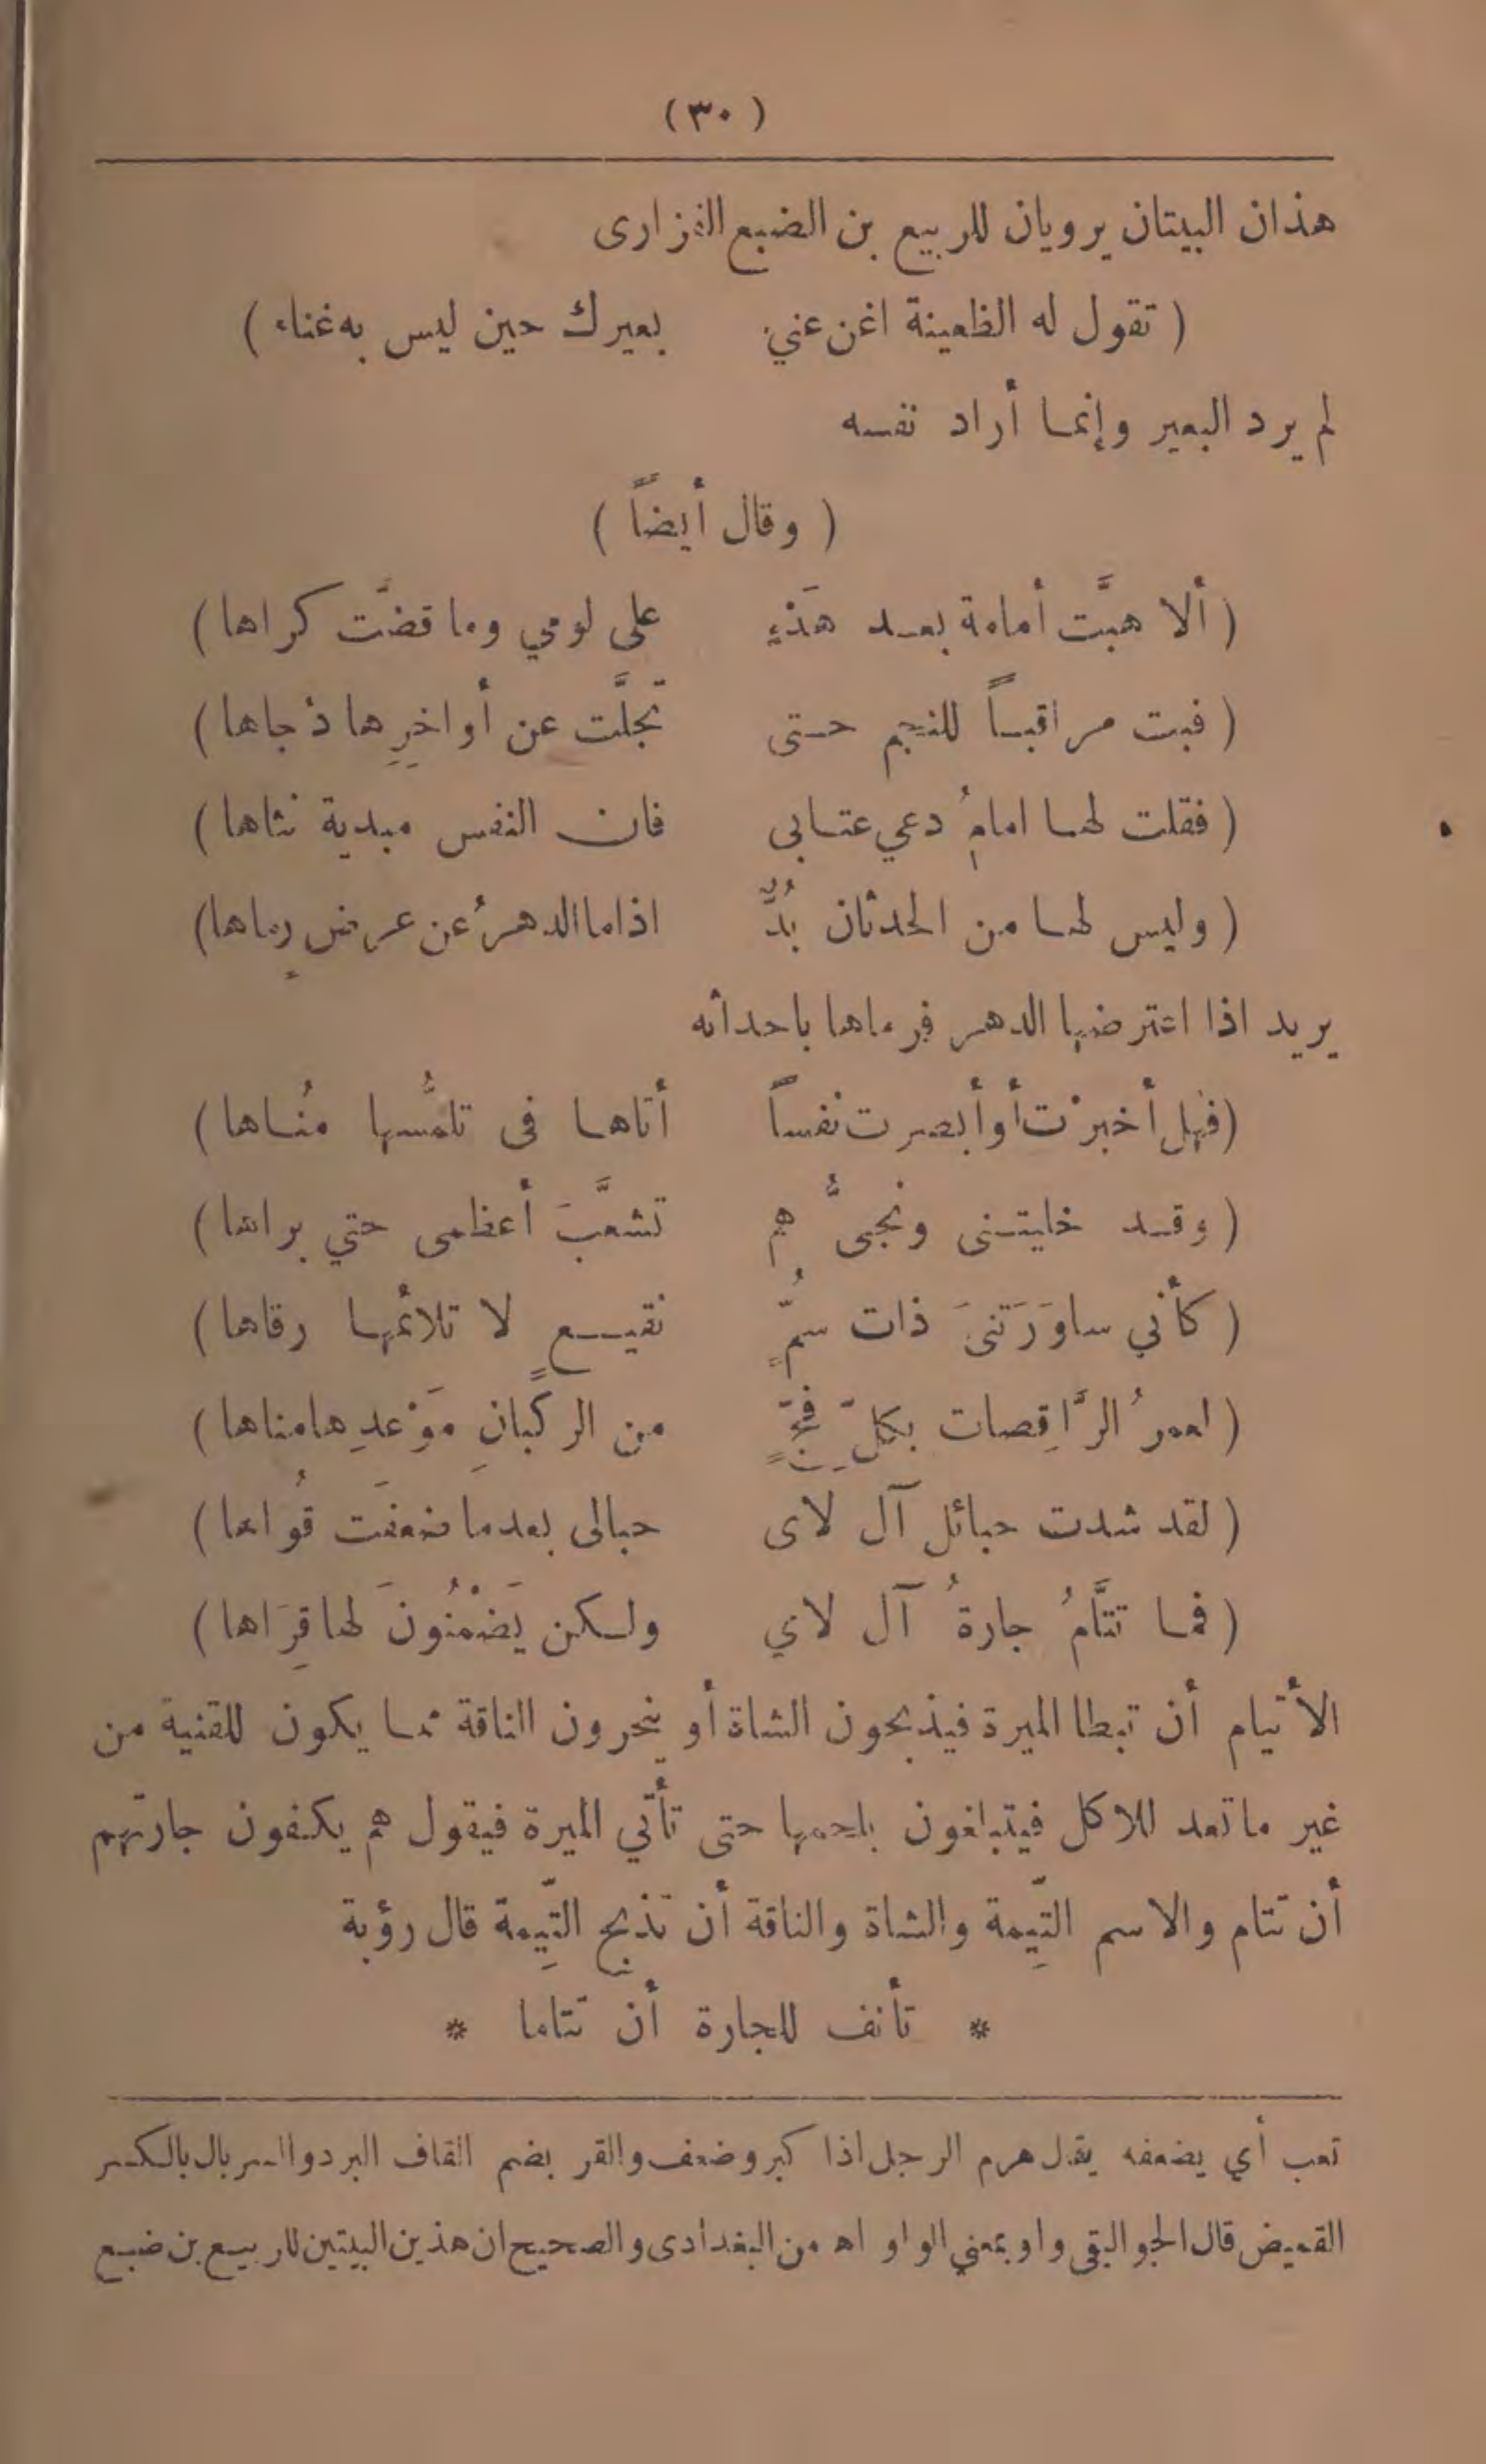 (٣٠)
هذان البيتان يرويان للربيع بن الضبع الفزارى
( تقول له الظعينة اغن عني بعيرك حين ليس به غناء )
لم يرد البعير وإنما أراد نفسه
( وقال أيضاً )
( ألا هبَّت أمامة بعد هَدْءٍ على لومي وما قضَّت كراها )
( فبت مراقباً للنجم حتى تجلَّت عن أواخرِها دجاها )
( فقلت لها امامُ دعي عتابى فان النفس مبدية نثاها )
( وليس لها من الحدثان بُدٌّ اذا ما الدهرُ عن عرضٍ رماها )
يريد اذا اعترضها الدهر فرماها باحداثه
( فهل أخبرْت أو أبصرت نفساً أتاها فى تلمُّسها مُناها )
( وقد خليتنى ونجىُّ هم تشعَّبَ أعظمى حتي براها )
( كأني ساوَرَتنىَ ذات سُمٍّ نقيعٍ لا تلائمُها رقاها )
( لعمرُ الرَّاقِصات بكلِّ فجٍّ من الركبانِ مَوْعدِها مناها )
( لقد شدت حبائل آل لاى حبالى بعدما ضعفَت قُواها )
( فما تتَّامُ جارةُ آل لاي ولكن يَضْمُنُونَ لها قِرَاها )
الأتيام أن تبطا الميرة فيذبحون الشاة أو ينحرون الناقة مما يكون للقنية من
غير ما تعد للاكل فيتبلغون بلحمها حتى تأتي الميرة فيقول هم يكفون جارتهم
أن تتام والاسم التِّيمة والشاة والناقة أن تذبح التِّيمة قال رؤبة
* تأنف للجارة أن تتاما *
تعب أي يضعفه يقال هرم الرجل اذا كبر وضعف والقر بضم القاف البرد والسربال بالكسر
القميض قال الجواليقى واو بمعني الواو اه من البغدادى والصحيح ان هذين البيتين للربيع بن ضبع